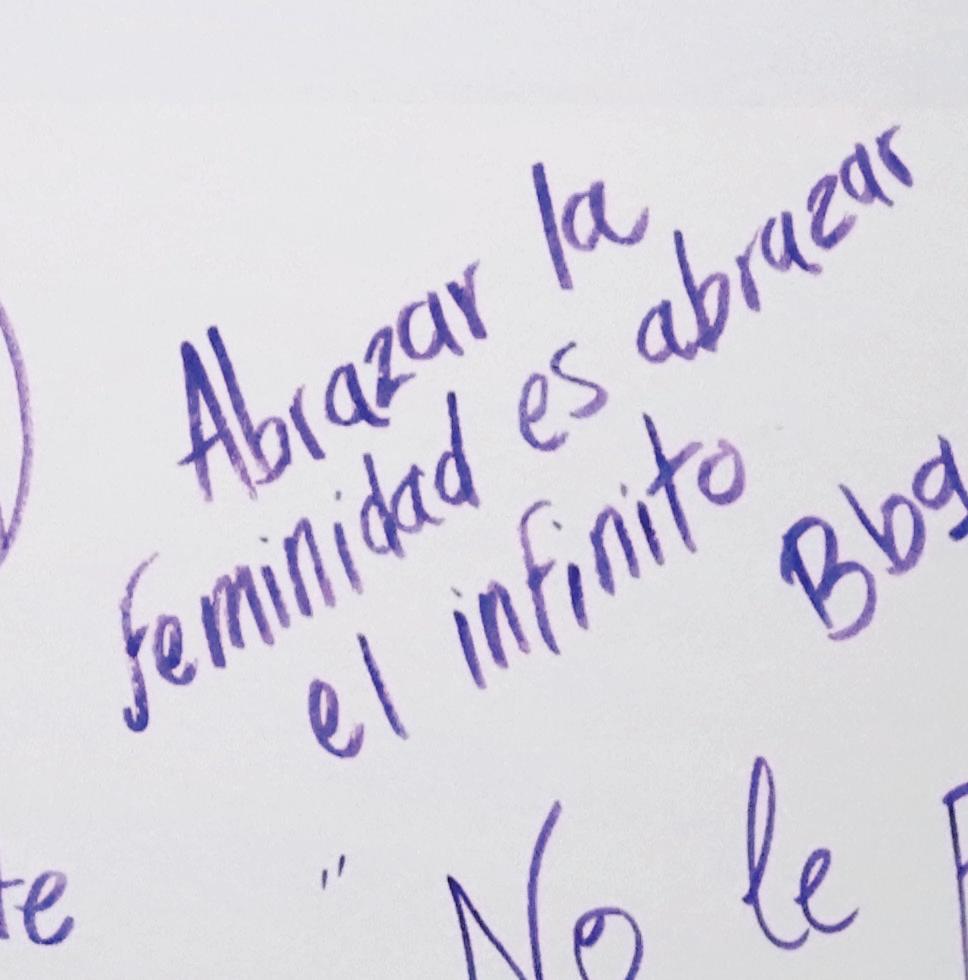 Abrazar la
feminidad es abrazar
el infinito
Bbg
te " No le